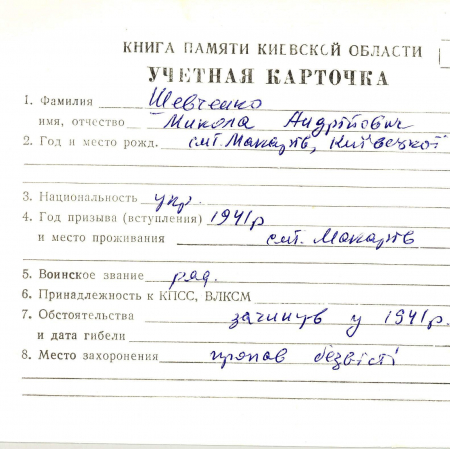 КНИГА ПАМЯТИ КИЕВСКОЙ ОБЛАСТИ
УЧЕТНАЯ КАРТОЧКА
1. Фамилия Шевченко
имя, отчество Микола Андрійович
2. Год и место рожд. смт. Макарів, Київської
3. Национальность укр.
4. Год призыва (вступления) 1941р
и место проживания смт. Макарів
5. Воинское звание ряд.
6. Принадлежность к КПСС, ВЛКСМ
7. Обстоятельства загинув у 1941р.
и дата гибели
8. Место захоронения пропав безвісті